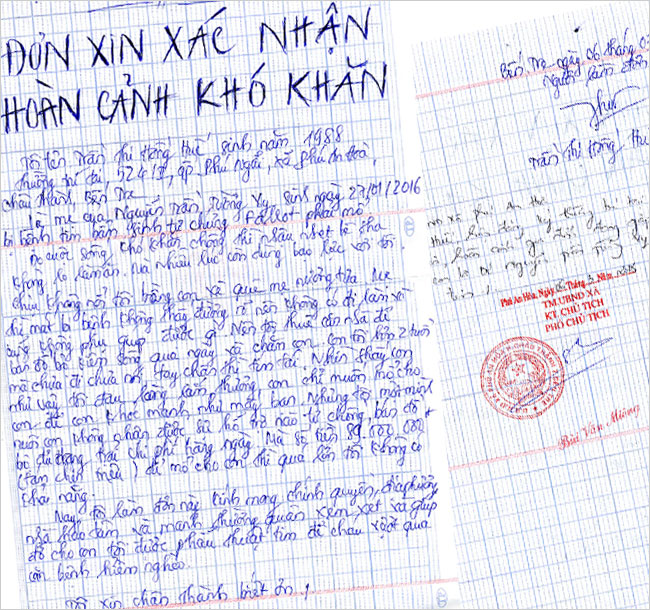 ĐƠN XIN XÁC NHẬN
HOÀN CẢNH KHÓ KHĂN
Tôi tên Trần Thị Hồng Huế sinh năm 1988
thường trú tại, 524/I, ấp Phú Ngãi, xã Phú An Hoà,
Châu Thành, Bến Tre
là mẹ của Nguyễn Trần Tường Vy, sinh ngày 27/01/2016
bị bệnh tim bẩm sinh tứ chứng Fallot phải mổ
cuộc sống, khó khăn chồng thì nhậu nhẹt bê tha
không lo làm ăn. Và nhiều lúc còn dùng bạo lực với tôi.
chịu không nổi tôi bồng con về quê mẹ nương tựa. Mẹ
thì mắt bị bệnh không thấy đường rõ nên không có đi làm
cũng không phụ giúp được gì. Nên tôi thuê căn nhà để
bán đồ bộ kiếm sống qua ngày và chăm con. con tôi hơn 2 tuổi
mà chưa đi chưa nói tay chân thì tím tái. Nhìn thấy con
như vậy tôi đau lòng lắm thương con chỉ muốn mổ cho
con để con khoẻ mạnh như mấy bạn. Nhưng tôi một mình
nuôi con không nhận được sự hỗ trợ nào từ chồng, bán đồ
bộ đủ trang trải chi phí hằng ngày. Mà số tiền 89.000.000đ
(tám chín triệu) để mổ cho con thì quá lớn tôi không có
khả năng.
Nay, tôi làm đơn này kính mong chính quyền, địa phương,
nhà hảo tâm và mạnh thường quân xem xét và giúp
đỡ cho con tôi được phẫu thuật tim để cháu vượt qua
căn bệnh hiểm nghèo.
Tôi xin chân thành biết ơn!
Bến Tre ngày 06 tháng 03
Người làm đơn
Trần Thị Hồng Huế
Phú An Hòa, Ngày Tháng 3 Năm
TM.UBND XÃ
KT. CHỦ TỊCH
PHÓ CHỦ TỊCH
Bùi Văn Miông